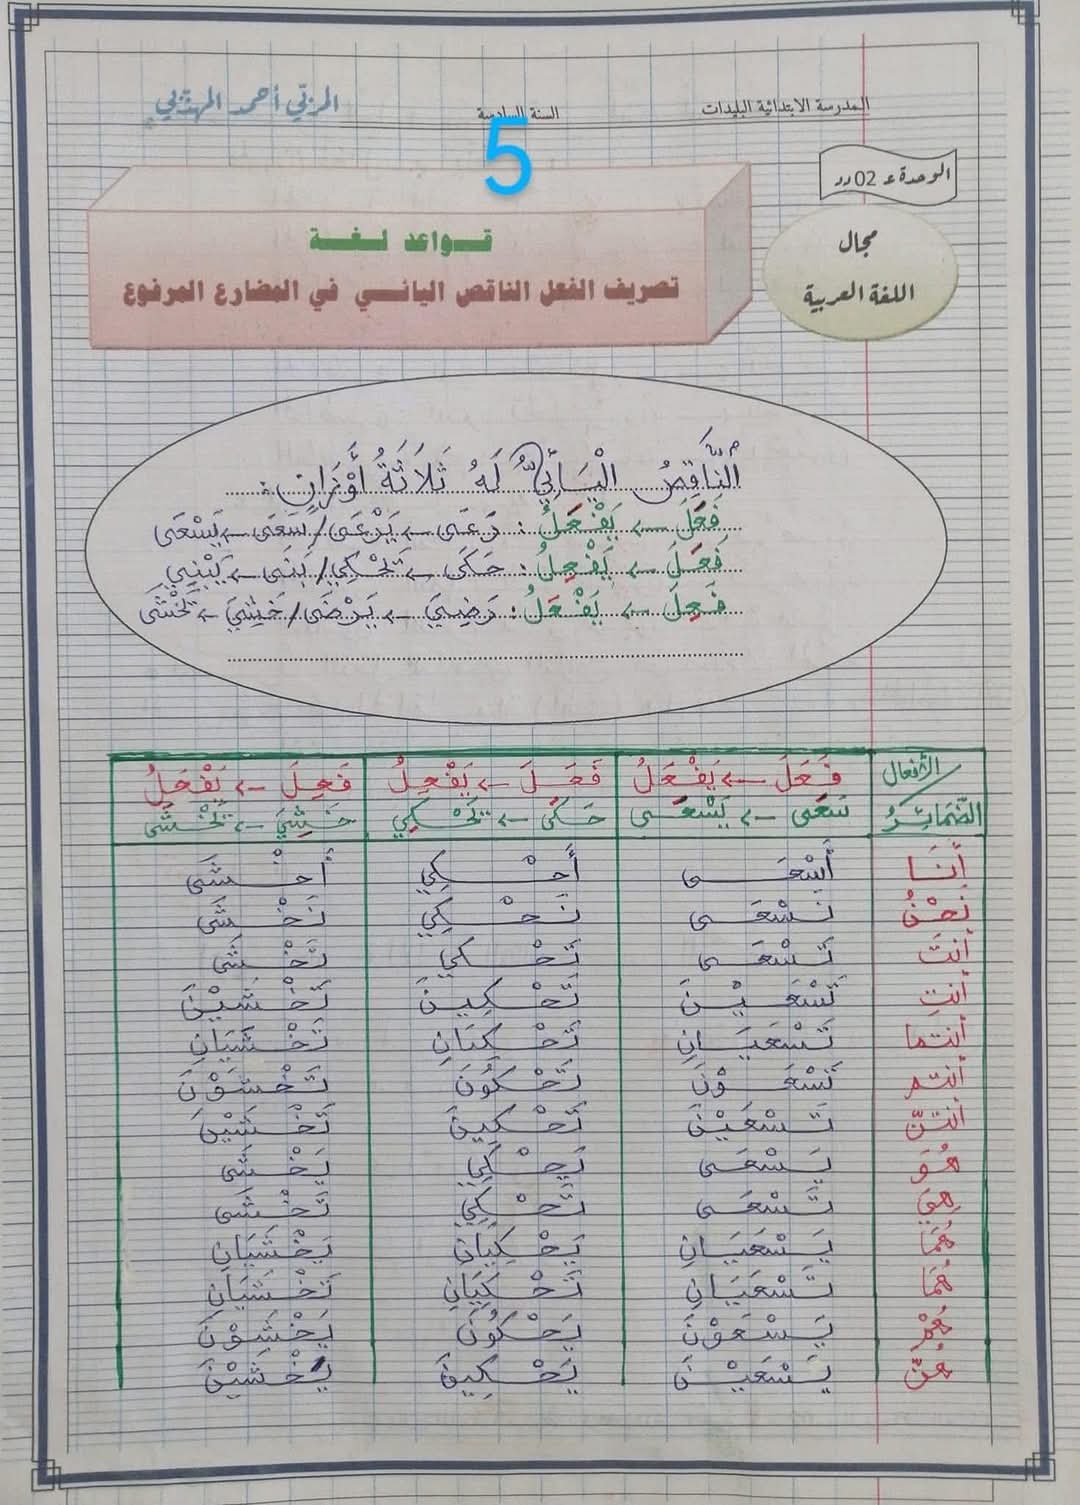 المدرسة الابتدائية البليدات السنة السادسة المربّي أحمد المهذّبي
5
الوحدة ع 02 دد
مجال
اللغة العربية
قواعد لغة
تصريف الفعل الناقص اليائي في المضارع المرفوع
النَّاقِصُ الْيَائِيُّ لَهُ ثَلَاثَةُ أَوْزَانٍ:
فَعَلَ ← يَفْعَلُ : رَعَى ← يَرْعَى / سَعَى ← يَسْعَى
فَعَلَ ← يَفْعِلُ : حَكَى ← يَحْكِي / بَنَى ← يَبْنِي
فَعِلَ ← يَفْعَلُ : رَضِيَ ← يَرْضَى / خَشِيَ ← يَخْشَى
الأفعال فَعَلَ ← يَفْعَلُ فَعَلَ ← يَفْعِلُ فَعِلَ ← يَفْعَلُ
الضّمائِرُ سَعَى ← يَسْعَى حَكَى ← يَحْكِي خَشِيَ ← يَخْشَى
أَنَا أَسْعَى أَحْكِي أَخْشَى
نَحْنُ نَسْعَى نَحْكِي نَخْشَى
أنتَ تَسْعَى تَحْكي تَخْشَى
أنتِ تَسْعَيْنَ تَحْكِينَ تَخْشَيْنَ
أنتما تَسْعَيَانِ تَحْكيَانِ تَخْشَيَانِ
أنتم تَسْعَوْنَ تَحْكُونَ تَخْشَوْنَ
أنتنّ تَسْعَيْنَ تَحْكِينَ تَخْشَيْنَ
هُوَ يَسْعَى يَحْكِي يَخْشَى
هِيَ تَسْعَى تَحْكِي تَخْشَى
هُمَا يَسْعَيَانِ يَحْكِيَانِ يَخْشَيَانِ
هُمَا تَسْعَيَانِ تَحْكِيَانِ تَخْشَيَانِ
هُمْ يَسْعَوْنَ يَحْكُونَ يَخْشَوْنَ
هُنَّ يَسْعَيْنَ يَحْكِينَ يَخْشَيْنَ